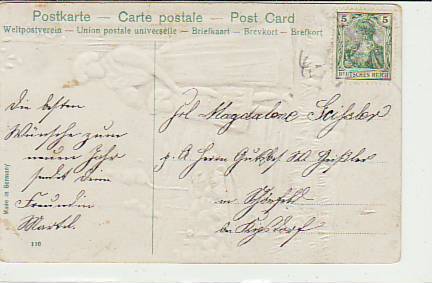 Postkarte — Carte postale — Post Card
Weltpostverein — Union postale universelle — Briefkaart — Brevkort — Brefkort
5 5
DEUTSCHES REICH
Die besten
Wünsche zum
neuen Jahr
sendet Deine
Freundin
Martel.
Frl. Magdalene Geissler
p. A. Herrn Gutsbes.
in Schönfeld
bei
Made in Germany
110